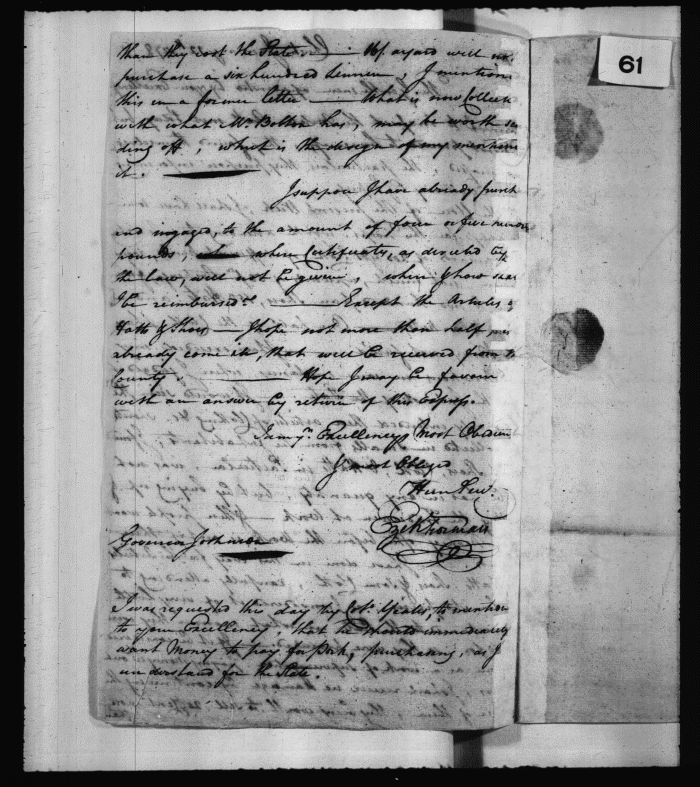 61
than they cost the State — 16/. a yard will no
purchase a six hundred linnen, I mention
this in a former letter — What is now Collect
with what Mr. Bolton has, may be worth sen
ding off, which is the design of my mention
it.
I suppose I have already purch
and ingaged, to the amount of four or five
pounds, where Certificates, as directed by
the law, will not be given, where & how
I be reimbursed — Except the Articles
Hatts & Shoes — I hope not more than half
already come in, that will be received from
County. — Hope I may be favour
with an answer by return of this Express.
I am yr. Excellencys Most Obedien
& most Obliged
Hum Serv.
Ezek Forman
Governor Johnson
I was requested this day by Colo. Yeates, to mention
to your Excellency, that he Should immediately
want Money to pay for Pork, purchasing, as I
understand for the State.